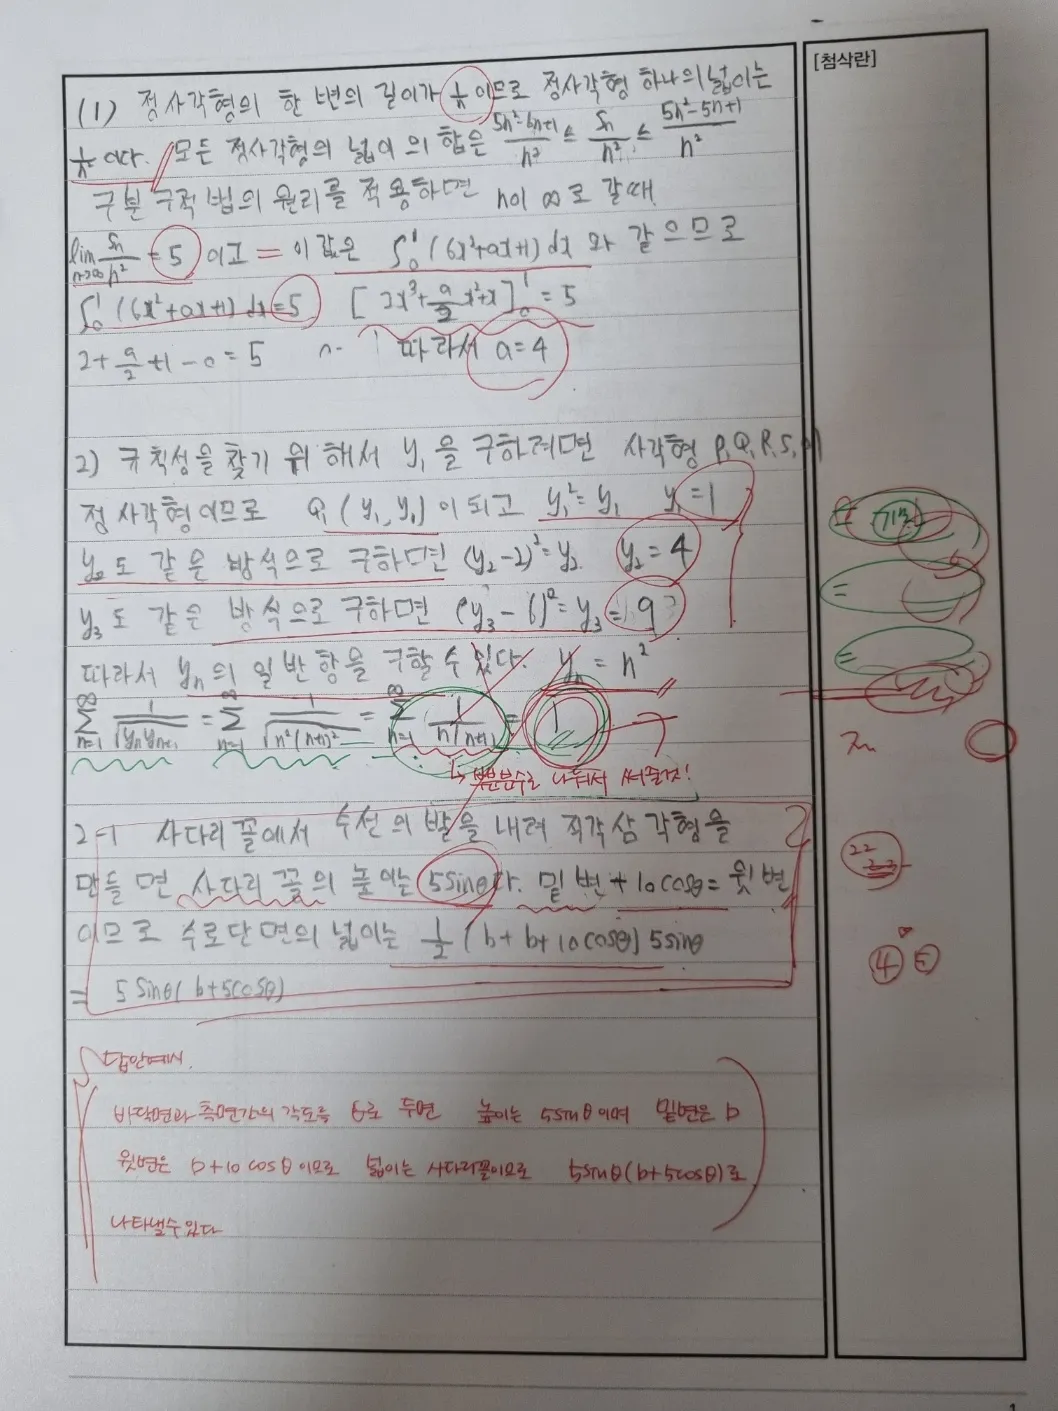 [첨삭란]
(1) 정사각형의 한 변의 길이가 1/n 이므로 정사각형 하나의 넓이는
이다. 모든 정사각형의 넓이의 합은 ≤ Sn/n² ≤ (5n²-5n+1)/n²
구분구적법의 원리를 적용하면 n이 ∞로 갈때
lim n→∞ Sn/n² = 5 이고 = 이 값은 ∫₀¹ (6x²+ax+1) dx 와 같으므로
∫₀¹ (6x²+ax+1) dx = 5 [2x³+a/2 x²+x]₀¹ = 5
2+a/2+1-0=5 따라서 a=4
2) 규칙성을 찾기 위해서 y₁을 구하려면 사각형 P₁Q₁R₁S₁이
정사각형이므로 Q₁(y₁, y₁)이 되고 y₁²=y₁ y₁=1
y₂도 같은 방식으로 구하면 (y₂-2)²=y₂ y₂=4
y₃도 같은 방식으로 구하면 (y₃-6)²=y₃ = 9
따라서 yn의 일반항을 구할 수 있다. yn = n²
∑ n=1 ∞ 1/√(yn yn+1) = ∑ n=1 ∞ 1/√(n²(n+1)²) = ∑ n=1 ∞ 1/(n(n+1)) = 1
↳ 부분분수로 나눠서 써줄것!
2-1 사다리꼴에서 수선의 발을 내려 직각삼각형을
만들면 사다리꼴의 높이는 5sinθ다. 밑변 + 10cosθ = 윗변
이므로 수로단면의 넓이는 1/2 (b+b+10cosθ) 5sinθ
= 5sinθ(b+5cosθ)
④ ⑤
답안예시.
바닥면과 측면간의 각도를 θ로 두면 높이는 5sinθ이며 밑변은 b
윗변은 b+10cosθ 이므로 넓이는 사다리꼴이므로 5sinθ(b+5cosθ)로
나타낼수있다
1